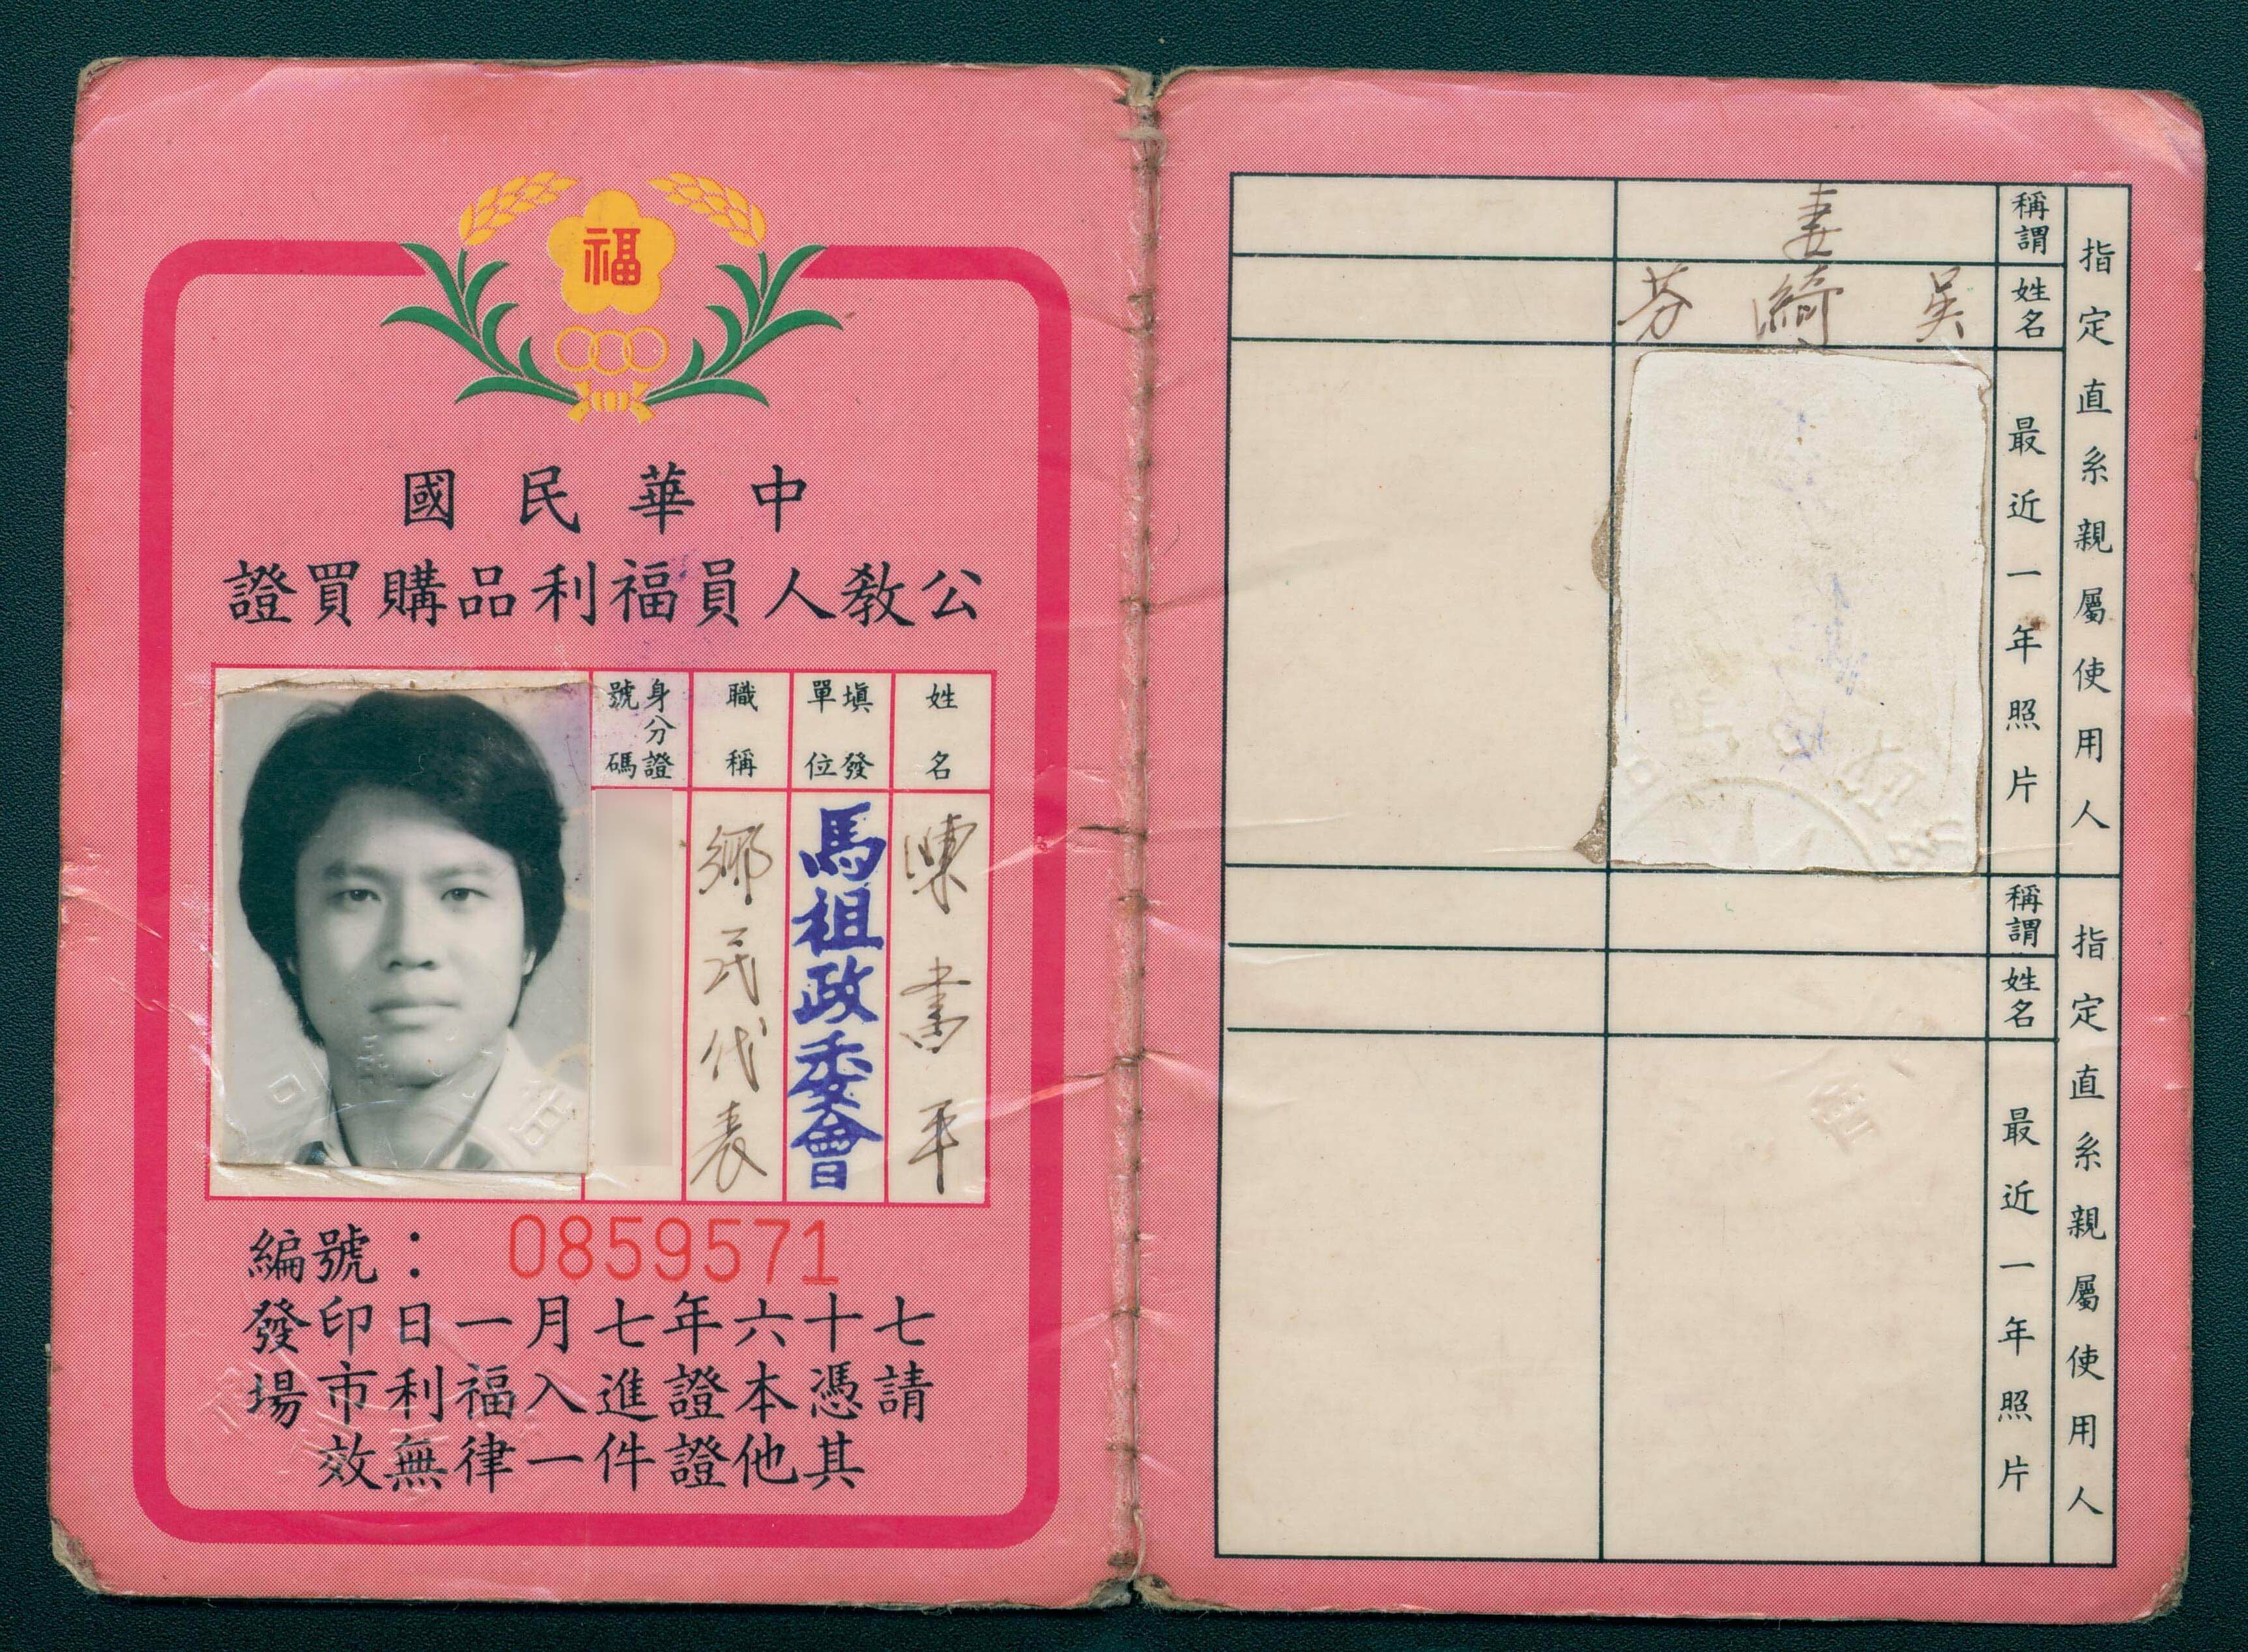 福
中華民國
公教人員福利品購買證
姓名
陳書平
填發單位
馬祖政委會
職稱
鄉民代表
身分證號碼
編號：0859571
七十六年七月一日印發
請憑本證進入福利市場
其他證件一律無效
指定直系親屬使用人
稱謂
妻
姓名
吳綺芬
最近一年照片
指定直系親屬使用人
稱謂
姓名
最近一年照片